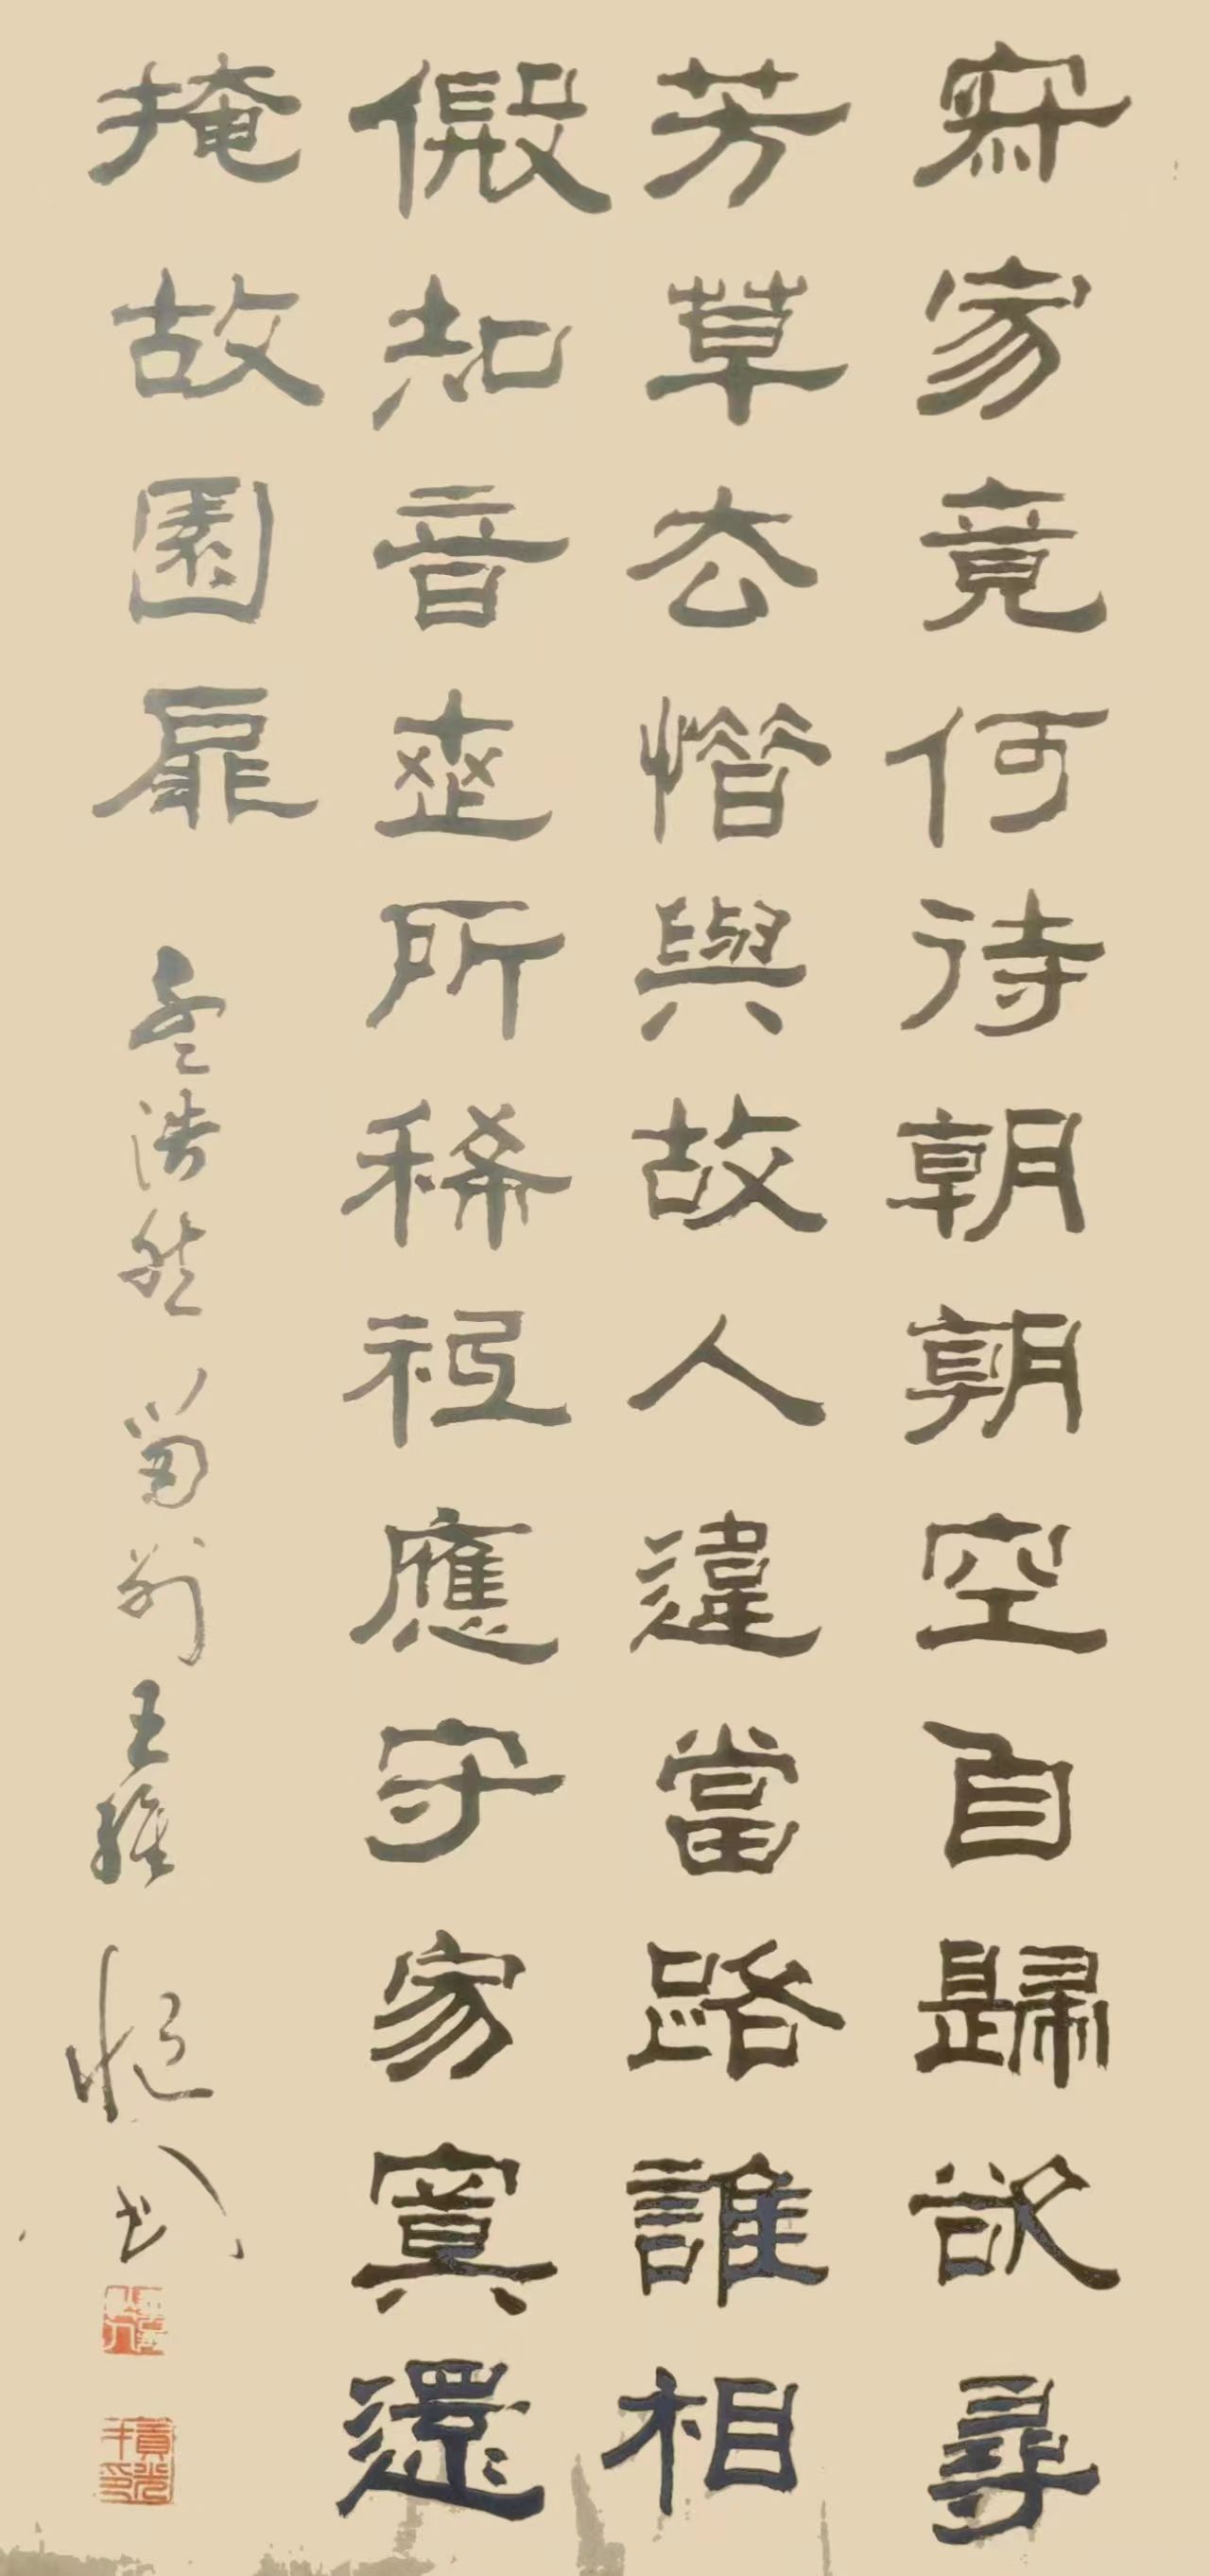 寂寂竟何待朝朝空自歸欲尋
芳草去惜與故人違當路誰相
假知音所稀祗應守寂寞還
掩故園扉 孟浩然 留別王維